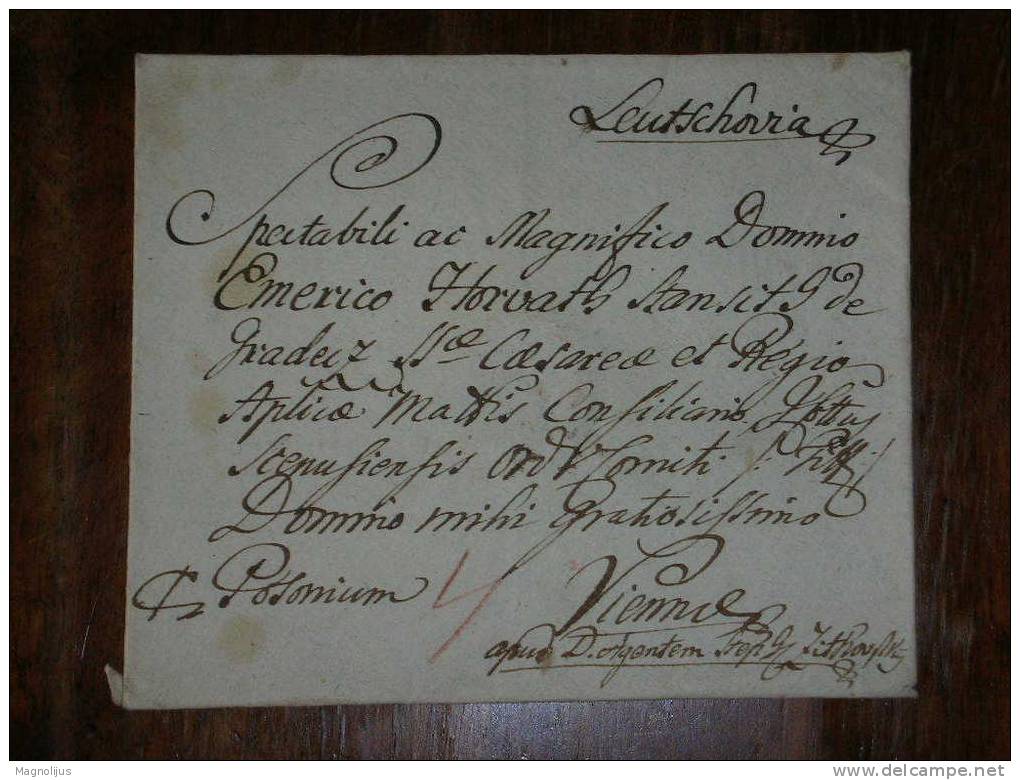 Leutschovia
Spectabili ac Magnifico Domino
Emerico Horvath Stansith de
Gradecz SSae Caesareae et Regio
Aplicae Mattis Consiliario
Scepusiensis Ord V Comiti
Domino mihi Gratiosissimo
Posonium
Viennae
apud D. Agentem
Magnolijus
delcampe.net